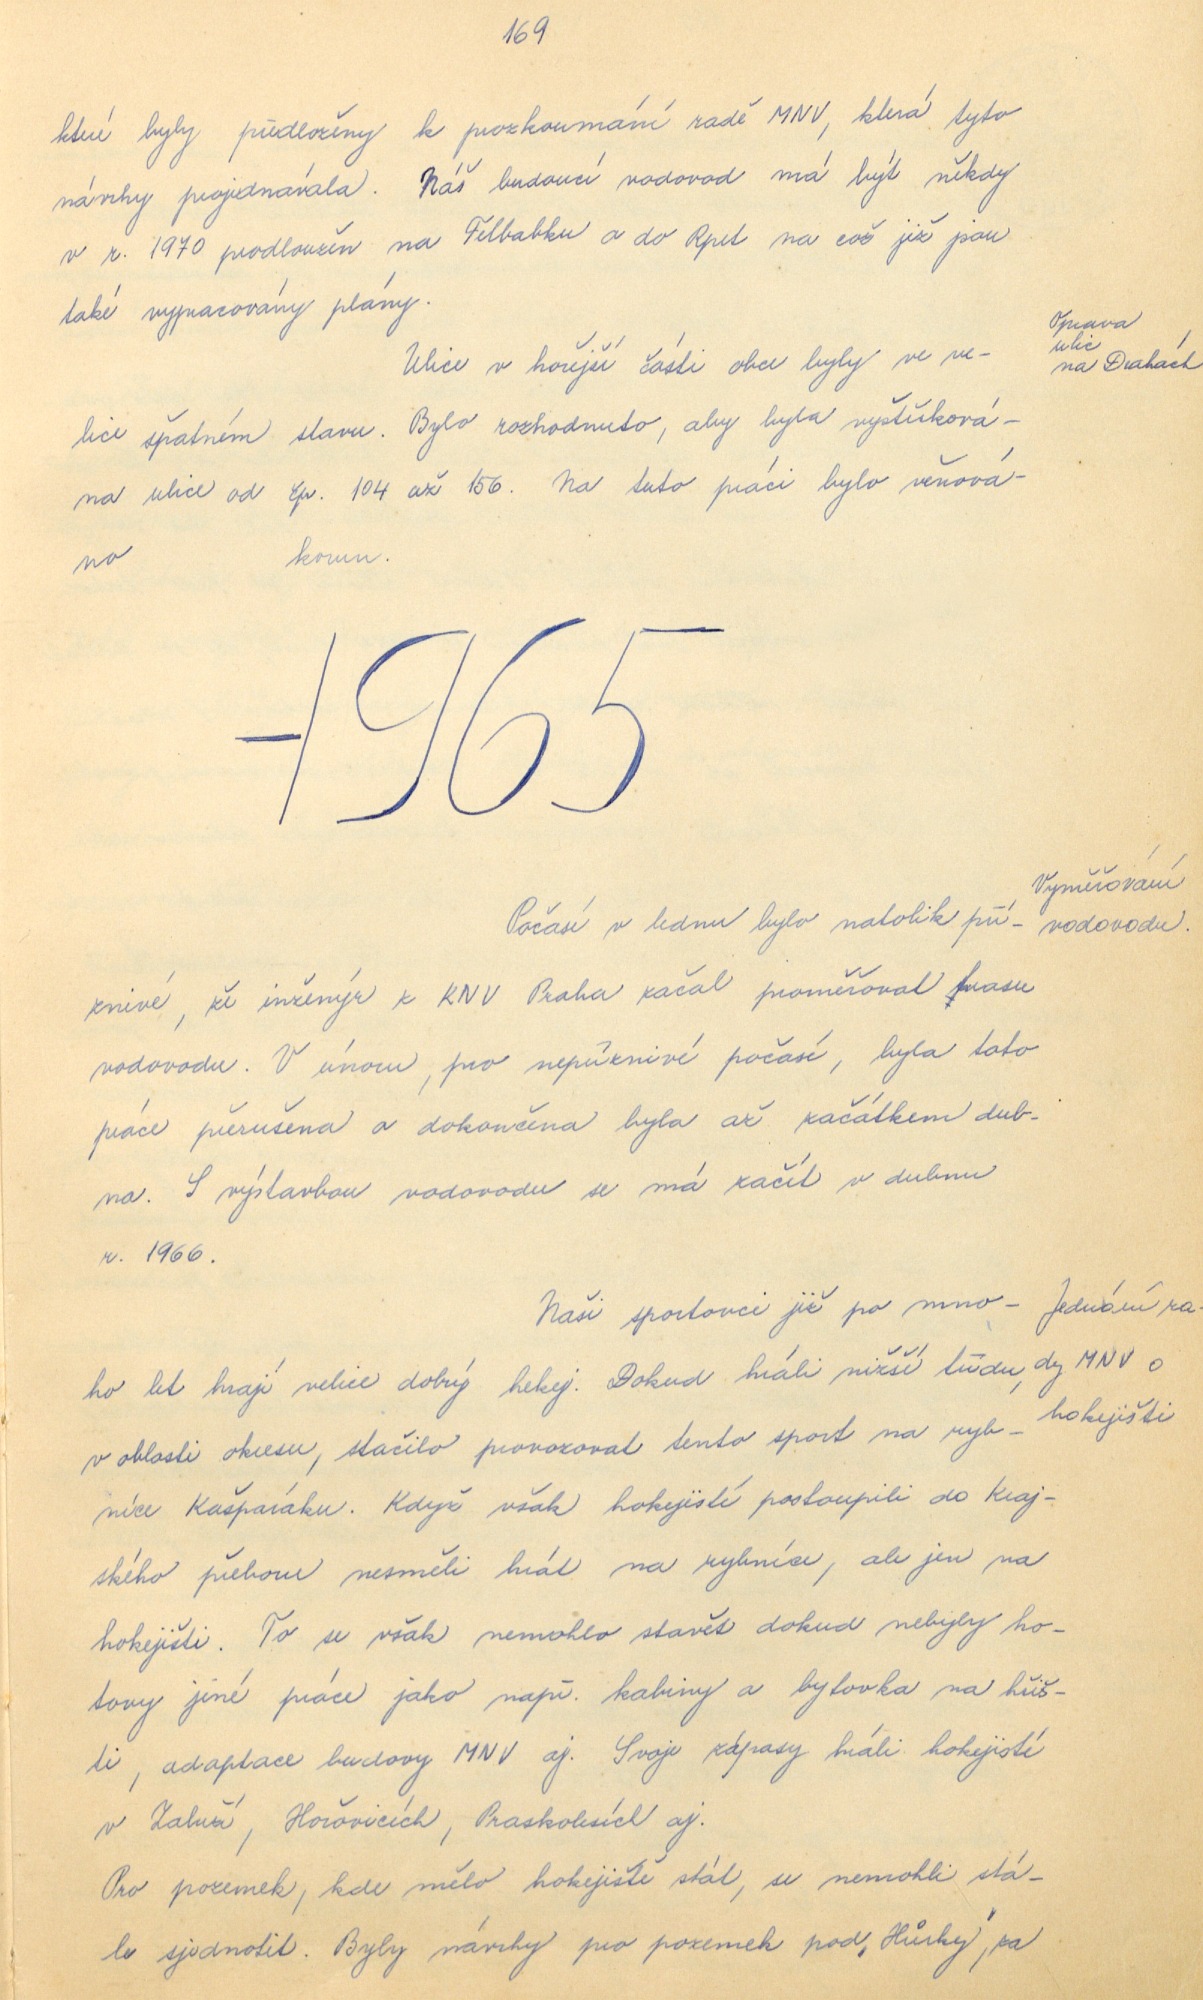 169
které byly předloženy k prozkoumání radě MNV, která tyto
návrhy projednávala. Náš budoucí vodovod má být někdy
v r. 1970 prodloužen na Felbabku a do Rpet na což již jsou
také vypracovány plány.
Oprava
ulic
na Drahách
Ulice v hořejší části obce byly ve ve-
lice špatném stavu. Bylo rozhodnuto, aby byla vyštěrková-
na ulice od čp. 104 až 156. Na tuto práci bylo věnová-
no korun.
1965
Vyměřování
vodovodu.
Počasí v lednu bylo natolik pří-
znivé, že inženýr z KNV Praha začal proměřovat trasu
vodovodu. V únoru, pro nepříznivé počasí, byla tato
práce přerušena a dokončena byla až začátkem dub-
na. S výstavbou vodovodu se má začít v dubnu
r. 1966.
Jednání ra-
dy MNV o
hokejišti
Naši sportovci již po mno-
ho let hrají velice dobrý hokej. Dokud hráli nižší třídu,
v oblasti okresu, stačilo provozovat tento sport na ryb-
níce Kašparáku. Když však hokejisté postoupili do Kraj-
ského přeboru nesměli hrát na rybníce, ale jen na
hokejišti. To se však nemohlo stavět dokud nebyly ho-
tovy jiné práce jako např. kabiny a bytovka na hřiš-
ti, adaptace budovy MNV aj. Svoje zápasy hráli hokejisté
v Zaluží, Hořovicích, Praskolesích aj.
Pro pozemek, kde mělo hokejiště stát, se nemohli stá-
le sjednotit. Byly návrhy pro pozemek pod „Hůrky", za